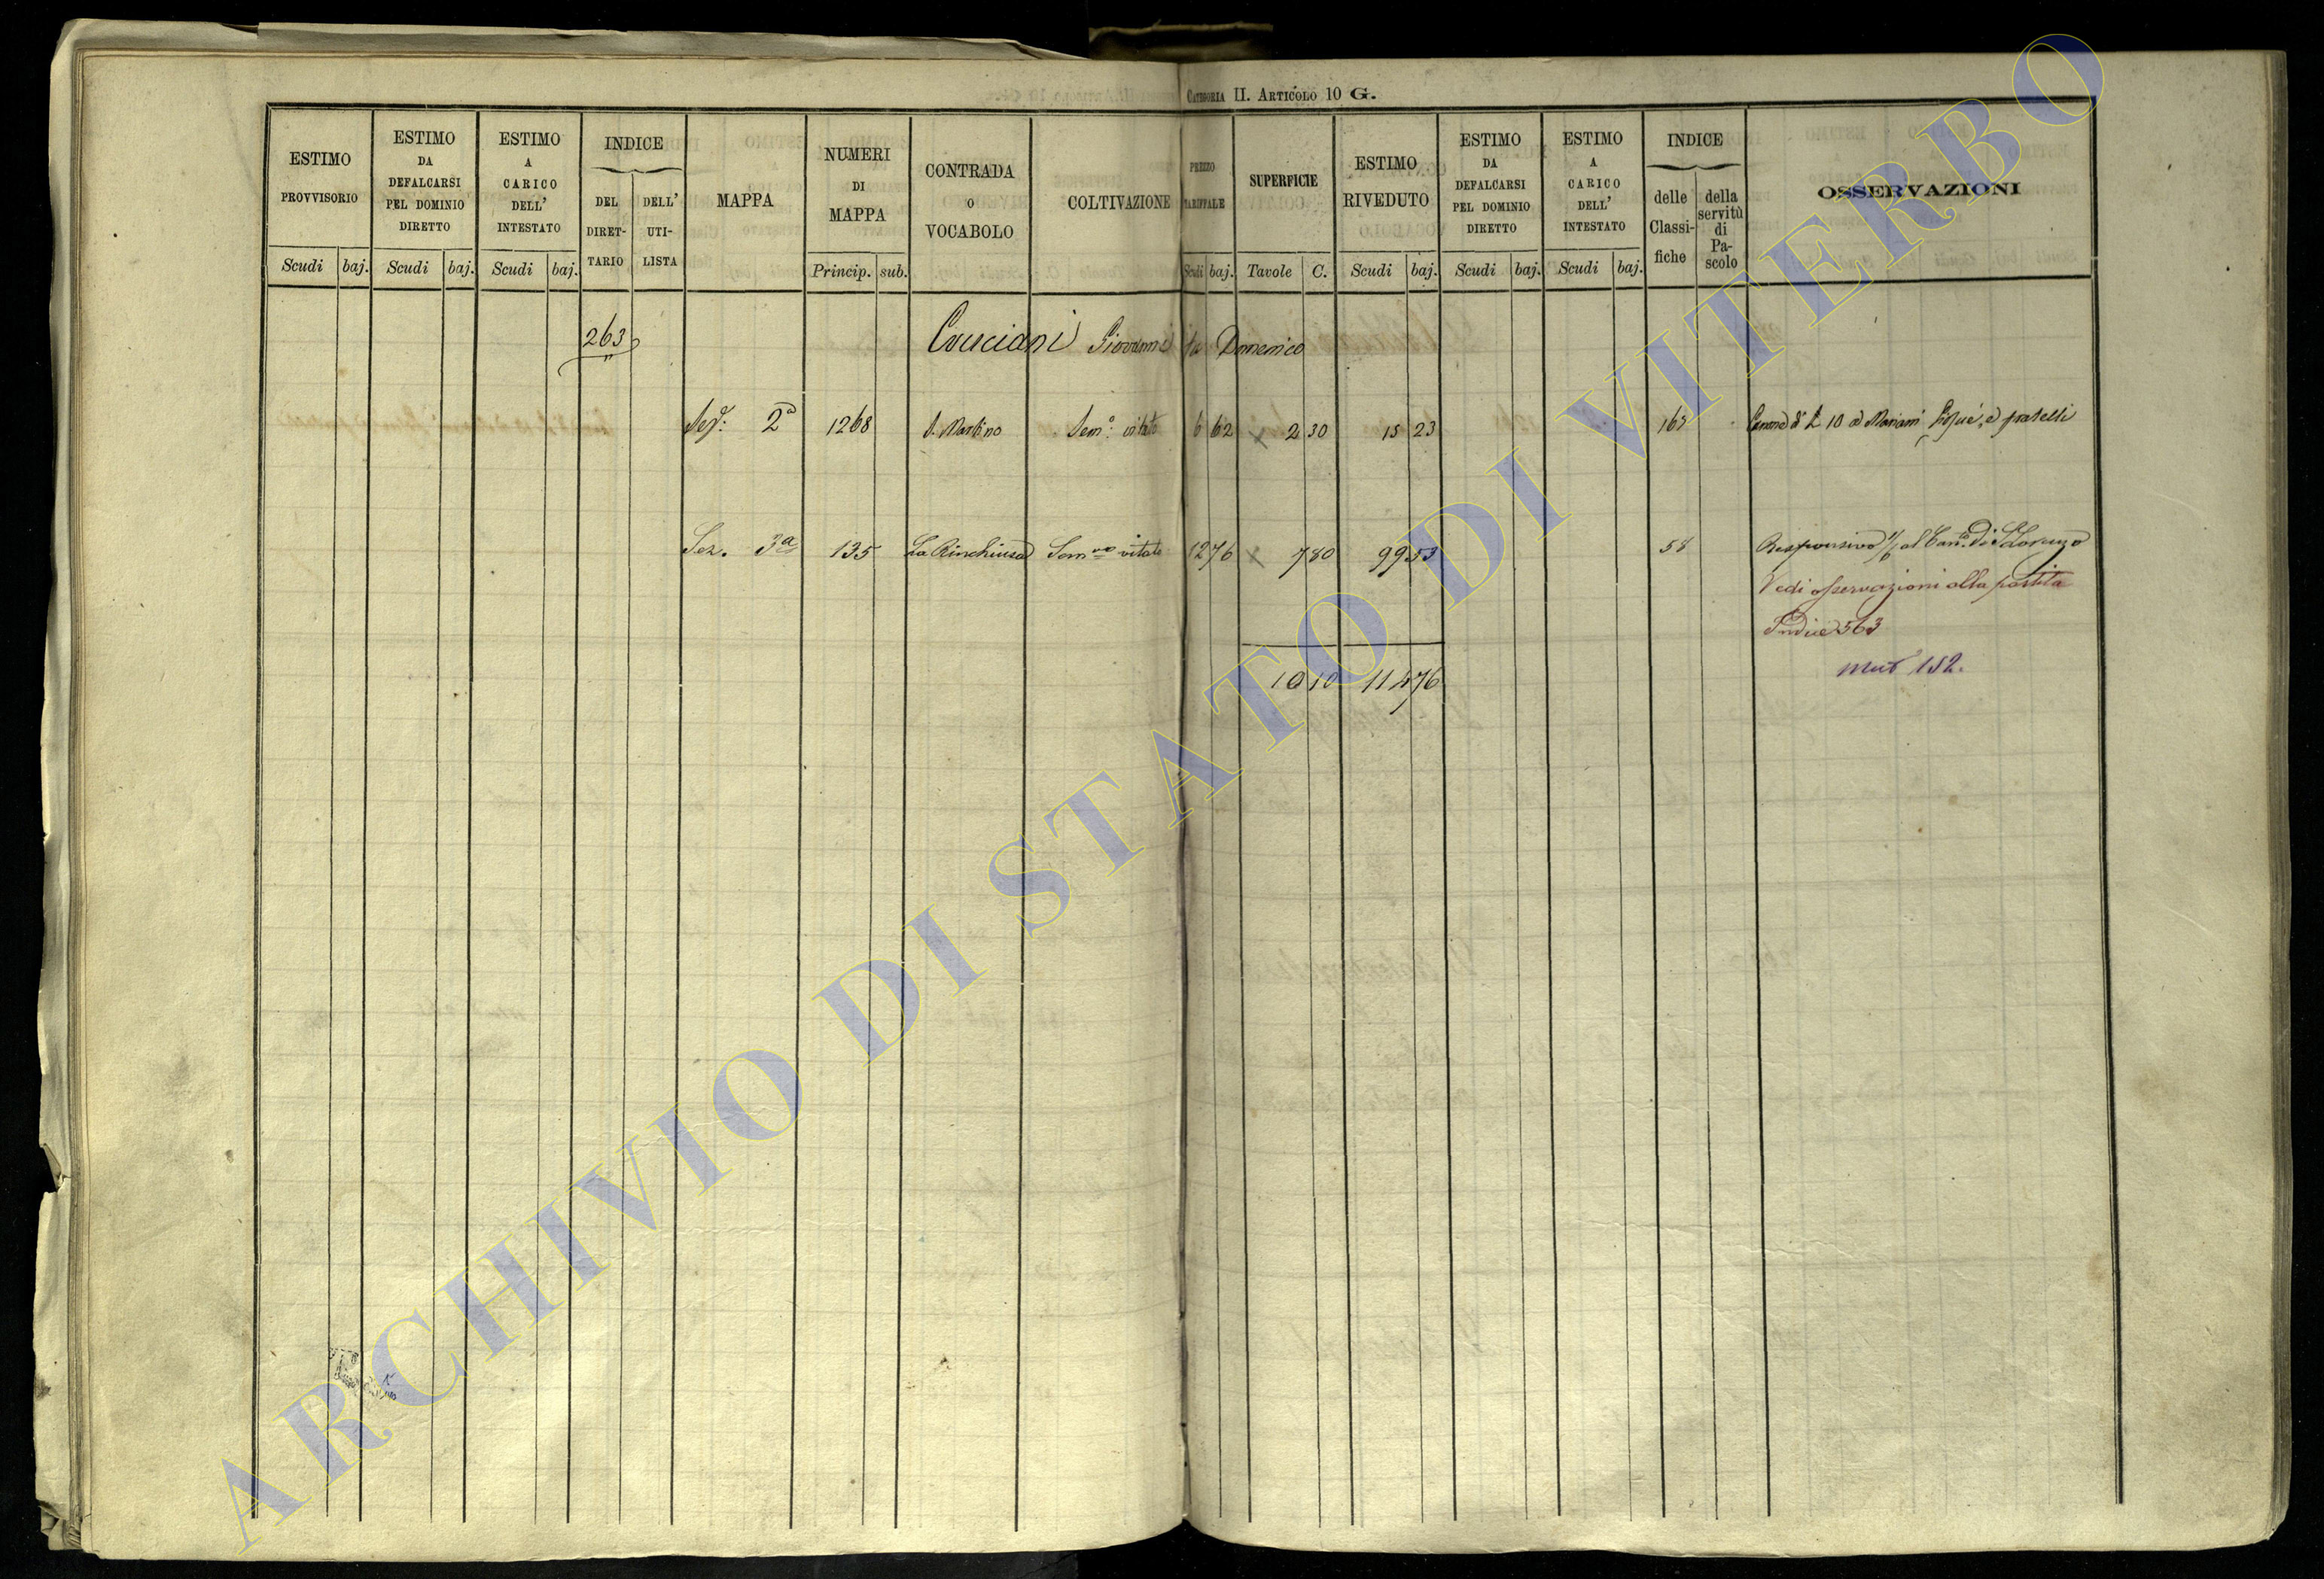 CATEGORIA II. ARTICOLO 10 G.
ESTIMO PROVVISORIO Scudi baj.
ESTIMO DA DEFALCARSI PEL DOMINIO DIRETTO Scudi baj.
ESTIMO A CARICO DELL' INTESTATO Scudi baj.
INDICE DEL DIRET-TARIO DELL' UTI-LISTA
MAPPA
NUMERI DI MAPPA Princip. sub.
CONTRADA O VOCABOLO
COLTIVAZIONE
PREZZO TARIFFALE Scudi baj.
SUPERFICIE Tavole C.
ESTIMO RIVEDUTO Scudi baj.
ESTIMO DA DEFALCARSI PEL DOMINIO DIRETTO Scudi baj.
ESTIMO A CARICO DELL' INTESTATO Scudi baj.
INDICE delle Classi-fiche della servitù di Pa-scolo
OSSERVAZIONI
263 Crusciani Giovanni fu Domenico
Sez. 2ª 1268 S. Martino Sem.º vitato 6 62 2 30 15 23 Canone di £ 10 a Mariani Giosuè, e fratelli
Sez. 3ª 135 La Rinchiusa Sem.vo vitato 12 76 7 80 99 53 58 Responsivo 1/6 al Can.to di S. Lorenzo
Vedi osservazioni alla partita
Indice 563
10 10 114 76
Mut 152.
ARCHIVIO DI STATO DI VITERBO